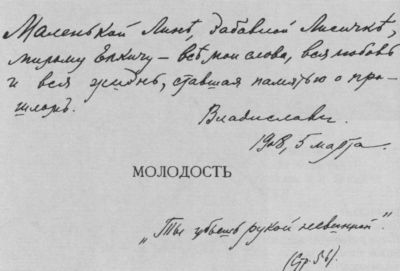 Маленькой Линѣ, забавной Лисичкѣ,
милому Елкичу – всѣ мои слова, вся любовь
и вся жизнь, ставшая памятью о про-
шломъ.
Владиславъ.
1908, 5 марта.
МОЛОДОСТЬ
„Ты убьешь рукой невинной".
(Стр. 56).